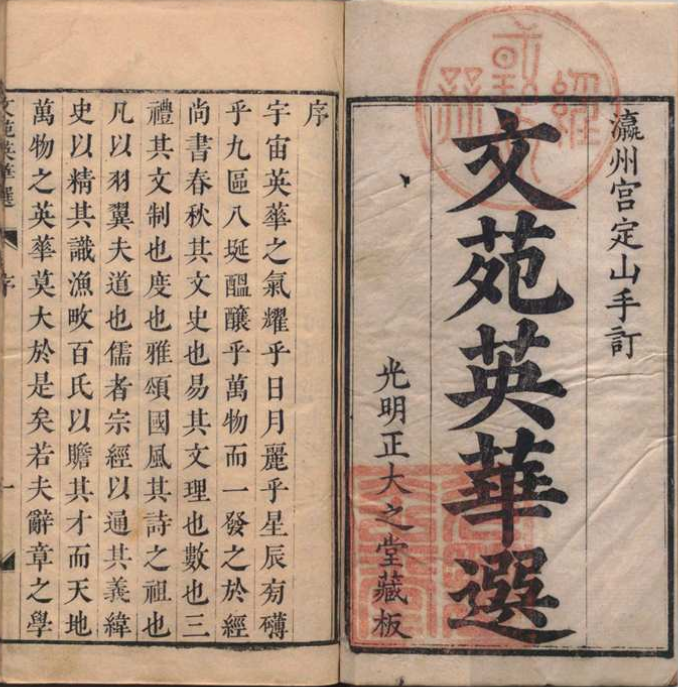 瀛州宫定山手訂
文苑英華選
光明正大之堂藏板
序
宇宙英華之氣耀乎日月麗乎星辰旁礴
乎九區八埏醞釀乎萬物而一發之於經
尚書春秋其文史也易其文理也數也三
禮其文制也度也雅頌國風其詩之祖也
凡以羽翼夫道也儒者宗經以通其義緯
史以精其識漁畋百氏以贍其才而天地
萬物之英華莫大於是矣若夫辭章之學
文苑英華選
序
一